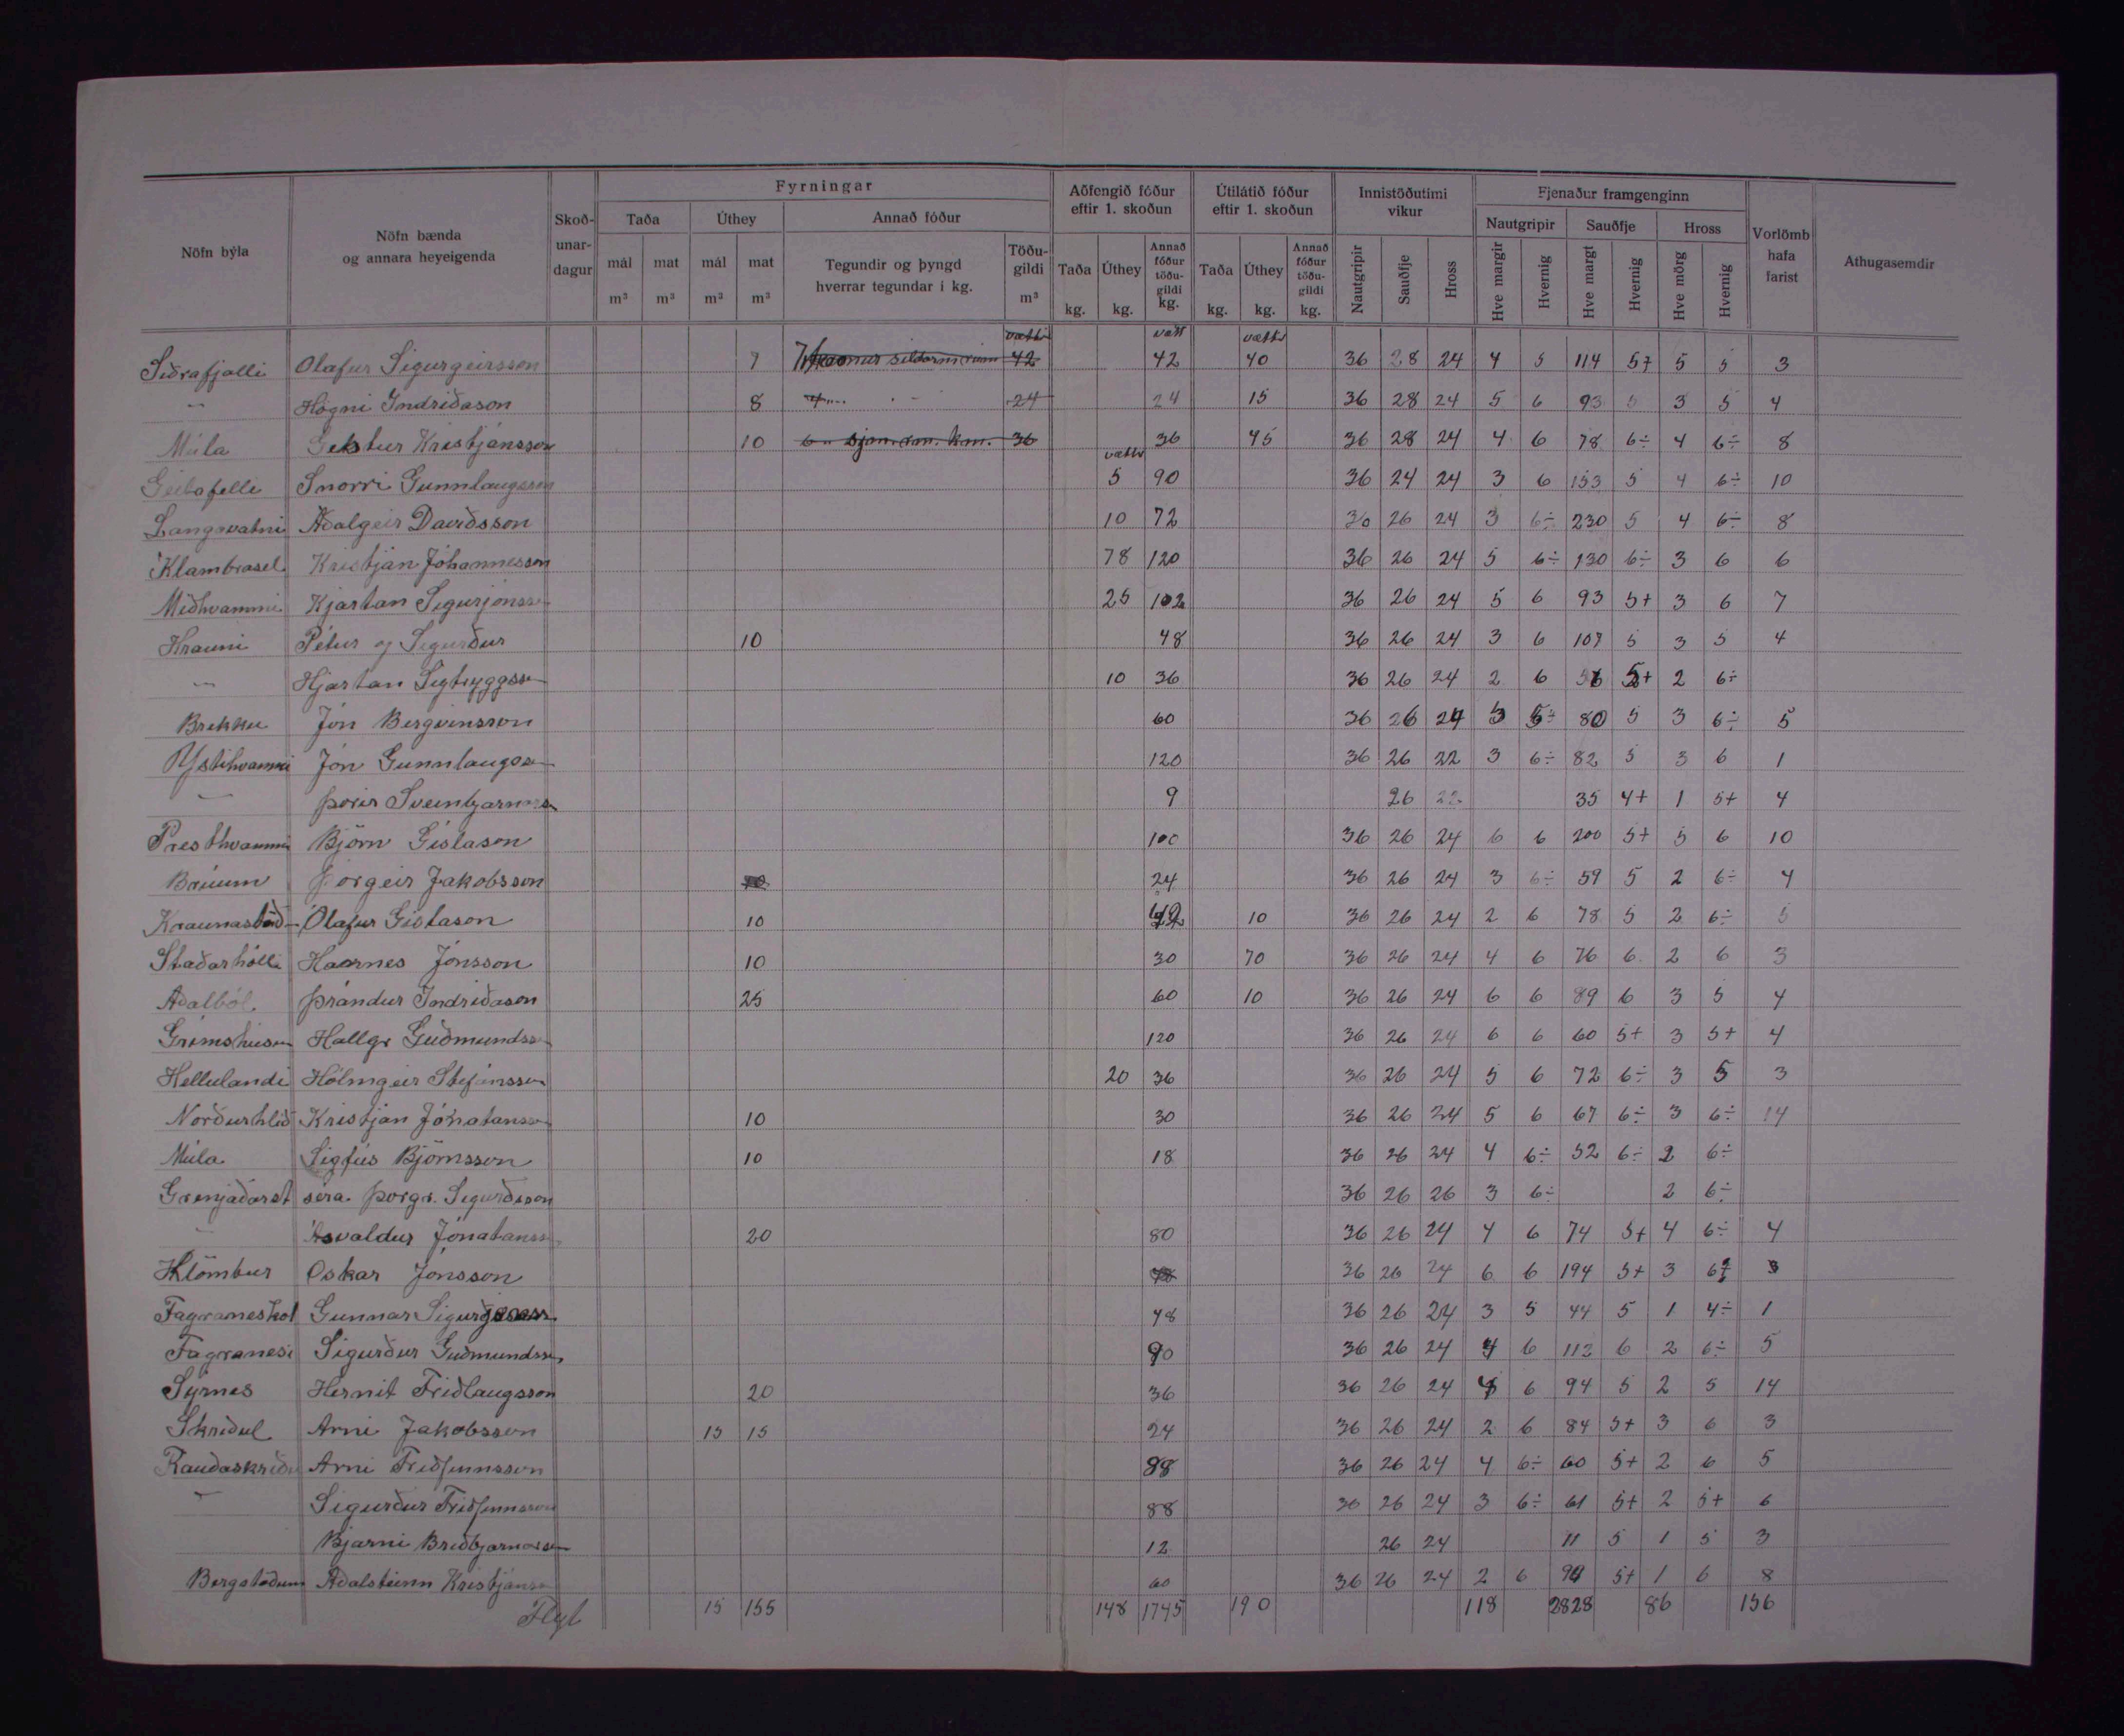 Fyrningar
Aðfengið fóður eftir 1. skoðun
Útilátið fóður eftir 1. skoðun
Innistöðutimi vikur
Fjenaður framgenginn
Nöfn býla
Nöfn bænda og annara heyeigenda
Skoð-unar-dagur
Taða
Úthey
Annað fóður
Nautgripir
Sauðfje
Hross
Vorlömb hafa farist
Athugasemdir
mál m³ mat m³ mál m³ mat m³
Tegundir og þyngd hverrar tegundar í kg.
Töðu-gildi m³
Taða kg. Úthey kg. Annað fóður töðu-gildi kg.
Taða kg. Úthey kg. Annað fóður töðu-gildi kg.
Nautgripir Sauðfje Hross
Hve margir Hvernig Hve margt Hvernig Hve mörg Hvernig
vætti vætt vætti
Siðrafjalli Olafur Sigurgeirsson 7 42 42 40 36 28 24 4 5 114 5+ 5 5 3
" Högni Indriðason 8 24 24 15 36 28 24 5 6 93 5 3 5 4
Múla Gestur Kristjánsson 10 36 36 45 36 28 24 4 6 78 6÷ 4 6÷ 8
vætti
Geitafelli Snorri Gunnlaugsson 5 90 36 24 24 3 6 153 5 4 6÷ 10
Langavatni Aðalgeir Davíðsson 10 72 36 26 24 3 6÷ 230 5 4 6÷ 8
Klambrasel Kristján Jóhannesson 78 120 36 26 24 5 6÷ 130 6÷ 3 6 6
Miðhvammi Kjartan Sigurjónsson 25 102 36 26 24 5 6 93 5+ 3 6 7
Hrauni Pétur og Sigurður 10 48 36 26 24 3 6 107 5 3 5 4
" Hjartan Sigtryggsson 10 36 36 26 24 2 6 5+ 2 6÷
Brekku Jón Bergvinsson 60 36 26 24 3 5÷ 80 5 3 6÷ 5
Ystihvammi Jón Gunnlaugss 120 36 26 22 3 6÷ 82 5 3 6 1
" Þórir Sveinbjarnarson 9 26 22 35 4+ 1 5+ 4
Presthvammi Björn Gíslason 100 36 26 24 6 6 200 5+ 5 6 10
Brúum Þorgeir Jakobsson 24 36 26 24 3 6÷ 59 5 2 6÷ 4
Kraunastöð Ólafur Gíslason 10 10 36 26 24 2 6 78 5 2 6÷ 5
Staðarhóli Hannes Jónsson 10 30 70 36 26 24 4 6 76 6 2 6 3
Aðalból Þrándur Indriðason 25 60 10 36 26 24 6 6 89 6 3 5 4
Grímshúsum Hallgr Guðmundss 120 36 26 24 6 6 60 5+ 3 5+ 4
Hellulandi Hólmgeir Stefánsson 20 36 36 26 24 5 6 72 6÷ 3 5 3
Norðurhlíð Kristján Jónatanss 10 30 36 26 24 5 6 67 6÷ 3 6÷ 14
Múla Sigfús Björnsson 10 18 36 26 24 4 6÷ 52 6÷ 2 6÷
Grenjaðarst séra Þorgr. Sigurðsson 36 26 26 3 6÷ 2 6÷
" Ásvaldur Jónatanss 20 80 36 26 24 4 6 74 5+ 4 6÷ 4
Klömbur Oskar Jónsson 36 26 24 6 6 194 5+ 3 3
Fagraneskot Gunnar 48 36 26 24 3 5 44 5 1 4÷ 1
Fagranesi Sigurður Guðmundss 90 36 26 24 4 6 112 6 2 6÷ 5
Sýrnes Hernit Friðlaugsson 20 36 36 26 24 4 6 94 5 2 5 14
Skriðul Arni Jakobsson 15 15 24 36 26 24 2 6 84 5+ 3 6 3
Rauðaskriðu Arni Friðfinnsson 88 36 26 24 4 6÷ 60 5+ 2 6 5
" Sigurður Friðfinnsson 88 36 26 24 3 6÷ 61 5+ 2 5+ 6
Bjarni Breðbjarnarson 12 26 24 11 5 1 5 3
Bergstöðum Aðalsteinn Kristjánss 60 36 26 24 2 6 5+ 1 6 8
Flyt 15 155 148 1745 190 118 2828 86 156